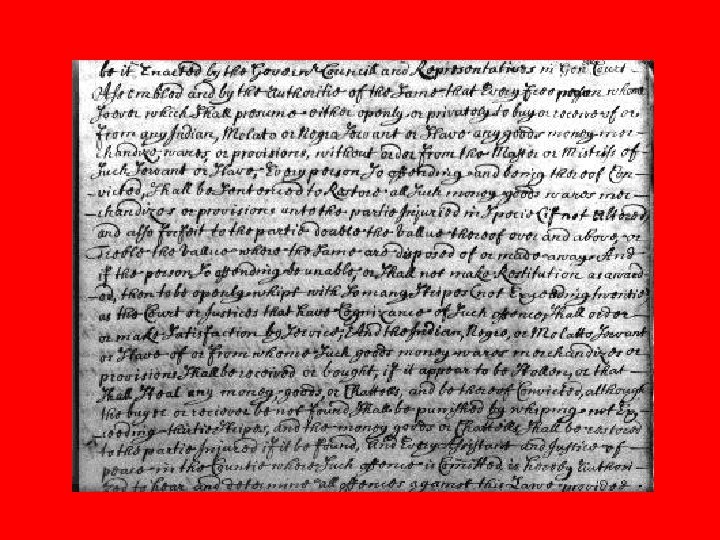 be it Enacted by the Govern:r Council and Representatives in Gen:ll Court
Assembled and by the Authoritie of the Same that Every free person whome
soever which Shall presume either openly or privatoly to buy or receive of or
from any Indian, Molato or Negro Servant or Slave any goods money mer-
chandize, wares, or provisions, without order from the Master or Mistriss of
Such Servant or Slave, Every person So offending and being thereof Con-
victed, Shall be Sentenced to Restore all Such money goods wares mer-
chandizes or provisions unto the partie Injuried in Specie (if not altered,
and also forfeit to the partie double the Vallue thereof over and above, or
Treble the Vallue where the Same are disposed of or made away. And
if the person So offending be unable, or Shall not make Restitution as award-
ed, then to be openly whipt with So many Stripes (not Exceeding twentie
as the Court or Justices that have Cognizance of Such offence, Shall order
or make Satisfaction by Service; And the Indian, Negro, or Molatto Servant
or Slave of or from whome Such goods money wares merchandizes or
provisions Shall be received or bought, if it appear to be Stollen, or that
Shall Steal any money, goods, or Chattells, and be thereof Convicted, although
the buyer or reciever be not found, Shall be punished by whiping not Ex-
ceeding thirtie Stripes, and the money goods or Chattells Shall be restored
to the partie Injured if it be found, And Every Assistant and Justice of
peace in the Countie where Such offence is Comitted is hereby Authori-
zed to hear and determine all offences against this Law provided